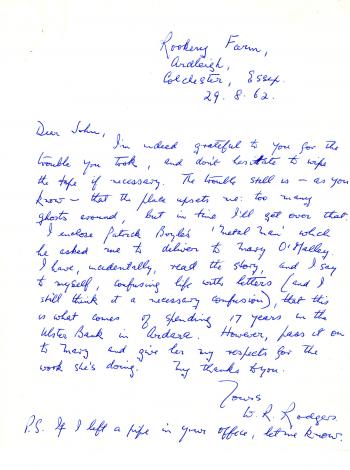 Rookery Farm,
Ardleigh,
Colchester, Essex.
29. 8. 62.
Dear John,
I'm indeed grateful to you for the
trouble you took, and don't hesitate to wipe
the tape if necessary. The trouble still is – as you
know – that the place upsets me: too many
ghosts around, but in time I'll get over that.
I enclose Patrick Boyle's 'Metal Man' which
he asked me to deliver to Mary O'Malley.
I have, incidentally, read the story, and I say
to myself, confusing life with letters (and I
still think it a necessary confusion), that this
is what comes of spending 17 years in the
Ulster Bank in Ardara. However, pass it on
to Mary and give her my respects for the
work she's doing. My thanks to you.
Yours
W. R. Rodgers.
P.S. If I left a pipe in your office, let me know.